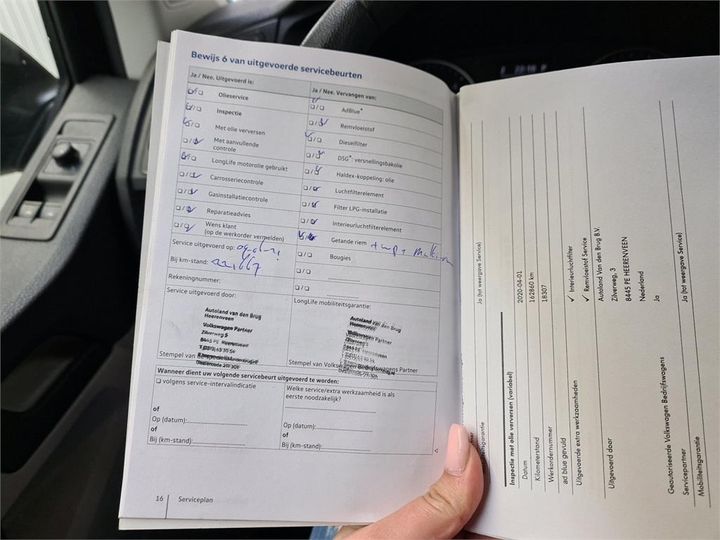 Bewijs 6 van uitgevoerde servicebeurten
Ja / Nee. Uitgevoerd is:
Olieservice
Inspectie
Met olie verversen
Met aanvullende
controle
LongLife motorolie gebruikt
Carrosseriecontrole
Gasinstallatiecontrole
Reparatieadvies
Wens klant
(op de werkorder vermelden)
Service uitgevoerd op:
Bij km-stand:
Rekeningnummer:
Service uitgevoerd door:
Autoland van den Brug
Heerenveen
Volkswagen Partner
Zilverweg 5
8445 PE Heerenveen
Stempel van
Ja / Nee. Vervangen van:
AdBlue®
Remvloeistof
Dieselfilter
DSG®: versnellingsbakolie
Haldex-koppeling: olie
Luchtfilterelement
Filter LPG-installatie
Interieurluchtfilterelement
Getande riem
Bougies
LongLife mobiliteitsgarantie:
Autoland van den Brug
Heerenveen
Volkswagen Partner
Stempel van Volkswagen Bedrijfswagens Partner
Wanneer dient uw volgende servicebeurt uitgevoerd te worden:
volgens service-intervalindicatie
of
Op (datum):
of
Bij (km-stand):
Welke service/extra werkzaamheid is als
eerste noodzakelijk?
Op (datum):
of
Bij (km-stand):
16 Serviceplan
Ja (tot weergave Service)
Inspectie met olie verversen (variabel)
Datum 2020-04-01
Kilometerstand 162860 km
Werkordernummer 18307
ad blue gevuld
Uitgevoerde extra werkzaamheden ✓ Interieurluchtfilter
✓ Remvloeistof Service
Uitgevoerd door Autoland Van den Brug B.V.
Zilverweg, 3
8445 PE HEERENVEEN
Nederland
Geautoriseerde Volkswagen Bedrijfswagens
Servicepartner Ja
Mobiliteitsgarantie Ja (tot weergave Service)